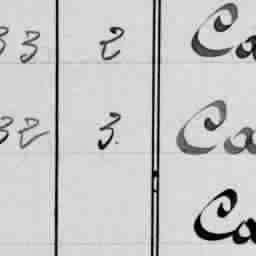 33 2 Ca
32 3. Ca
Ca